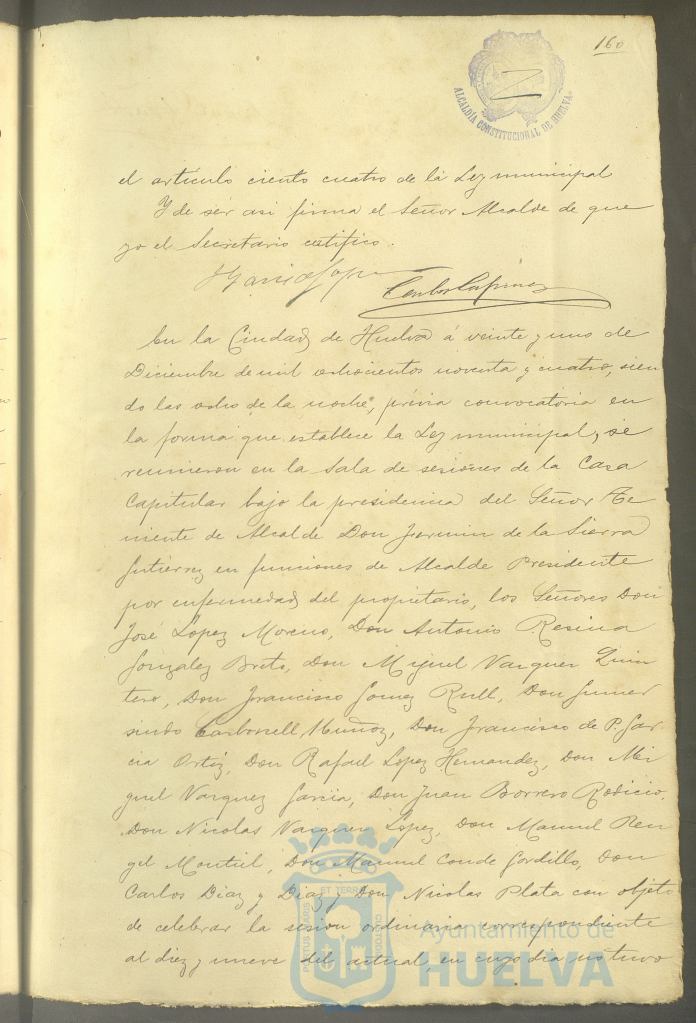 160
ALCALDÍA CONSTITUCIONAL DE HUELVA
el artículo ciento cuatro de la Ley municipal
Y de ser asi firma el Señor Alcalde de que
yo el Secretario certifico.
En la Ciudad de Huelva á veinte y uno de
Diciembre de mil ochocientos noventa y cuatro, sien
do las ocho de la noche, prévia convocatoria en
la forma que establece la Ley municipal, se
reunieron en la Sala de sesiones de la Casa
Capitular bajo la presidencia del Señor Te
niente de Alcalde Don Fermin de la Sierra
Gutiérrez en funciones de Alcalde Presidente
por enfermedad del propietario, los Señores Don
José López Moreno, Don Antonio Resina
González Brito, Don Miguel Vazquez Quin
tero, Don Francisco Gomez Rull, Don Gumer
sindo Carbonell Muñoz, Don Francisco de P. Gar
cia Ortiz, Don Rafael Lopez Hernandez, Don Mi
guel Vazquez Garcia, Don Juan Borrero Rodicio,
Don Nicolas Vazquez Lopez, Don Manuel Ren
gel Montiel, Don Manuel Conde Gordillo, Don
Carlos Diaz y Diaz y Don Nicolas Plata con objeto
de celebrar la sesion ordinaria correspondiente
al diez y nueve del actual, en cuyo dia no tuvo
PORTUS MARIS ET TERRAE CUSTODIA
Ayuntamiento de
HUELVA